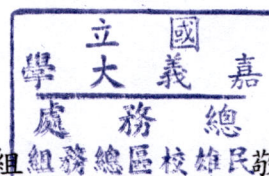 國立
嘉義大學
總務處
民雄校區總務組
組 敬